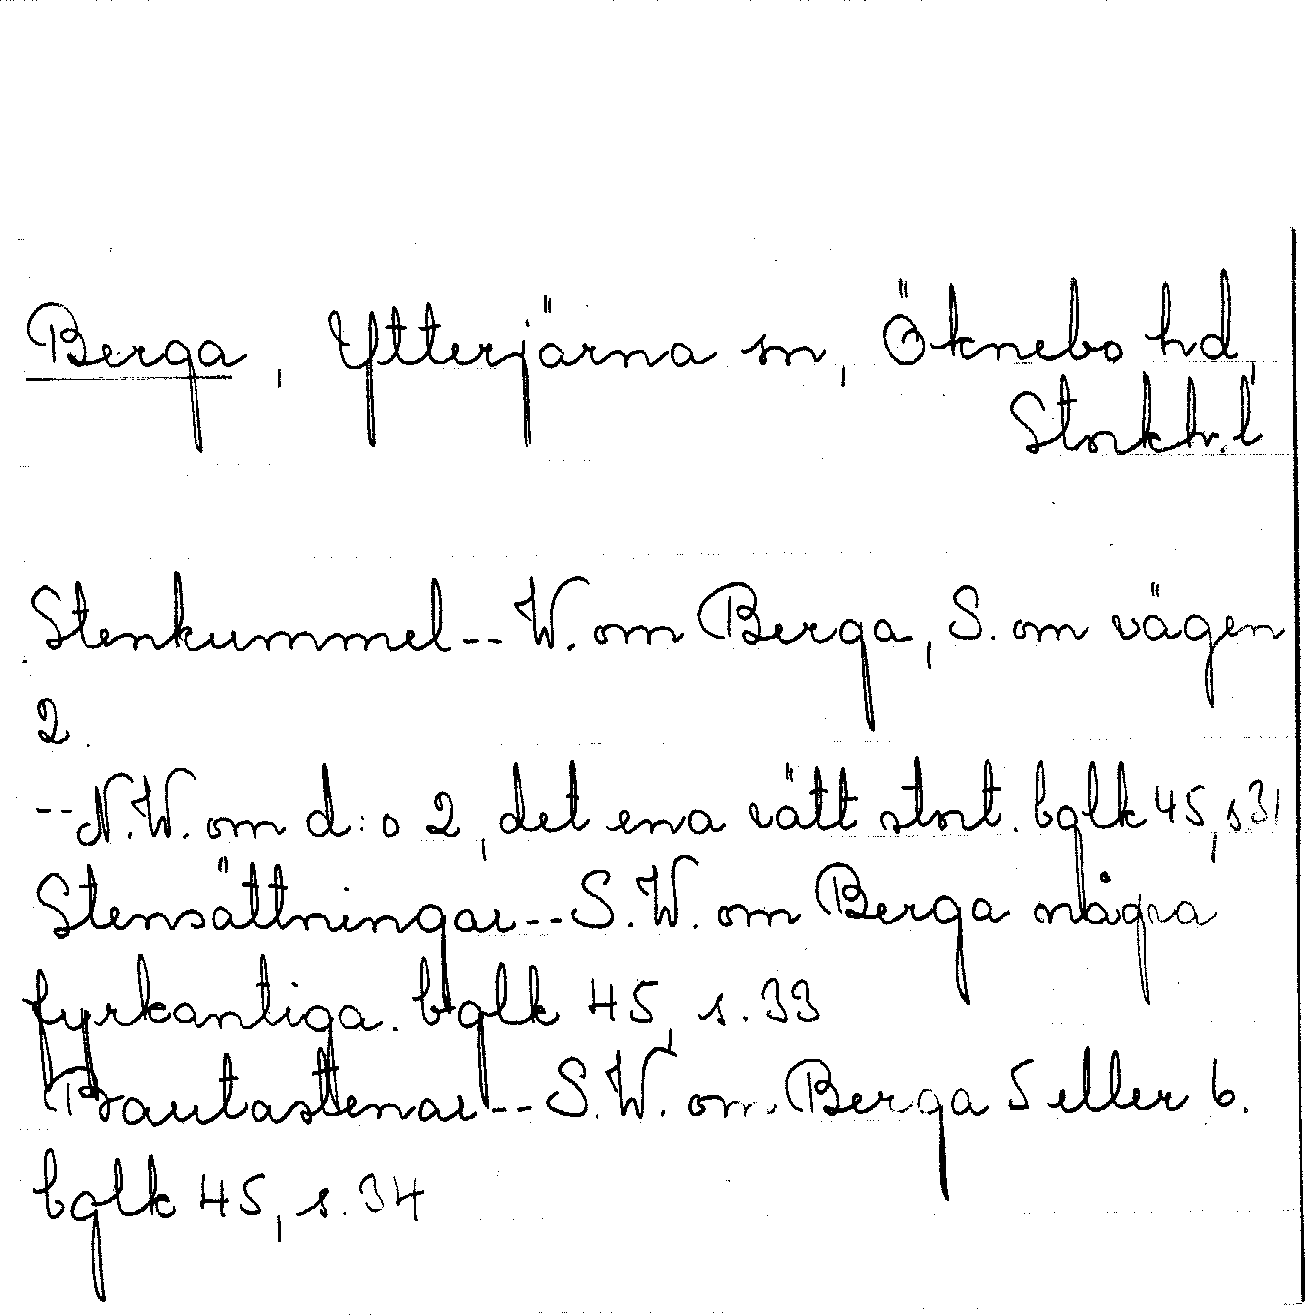 Berga, Ytterjärna sn, Öknebo hd,
Stockh. l
Stenkummel -- W. om Berga, S. om vägen
2.
-- N.W. om d:o 2, det ena rätt stort. bglk 45, s 31
Stensättningar -- S.W. om Berga några
fyrkantiga. bglk 45, s. 33
Bautastenar -- S.W. om Berga 5 eller 6.
bglk 45, s. 34